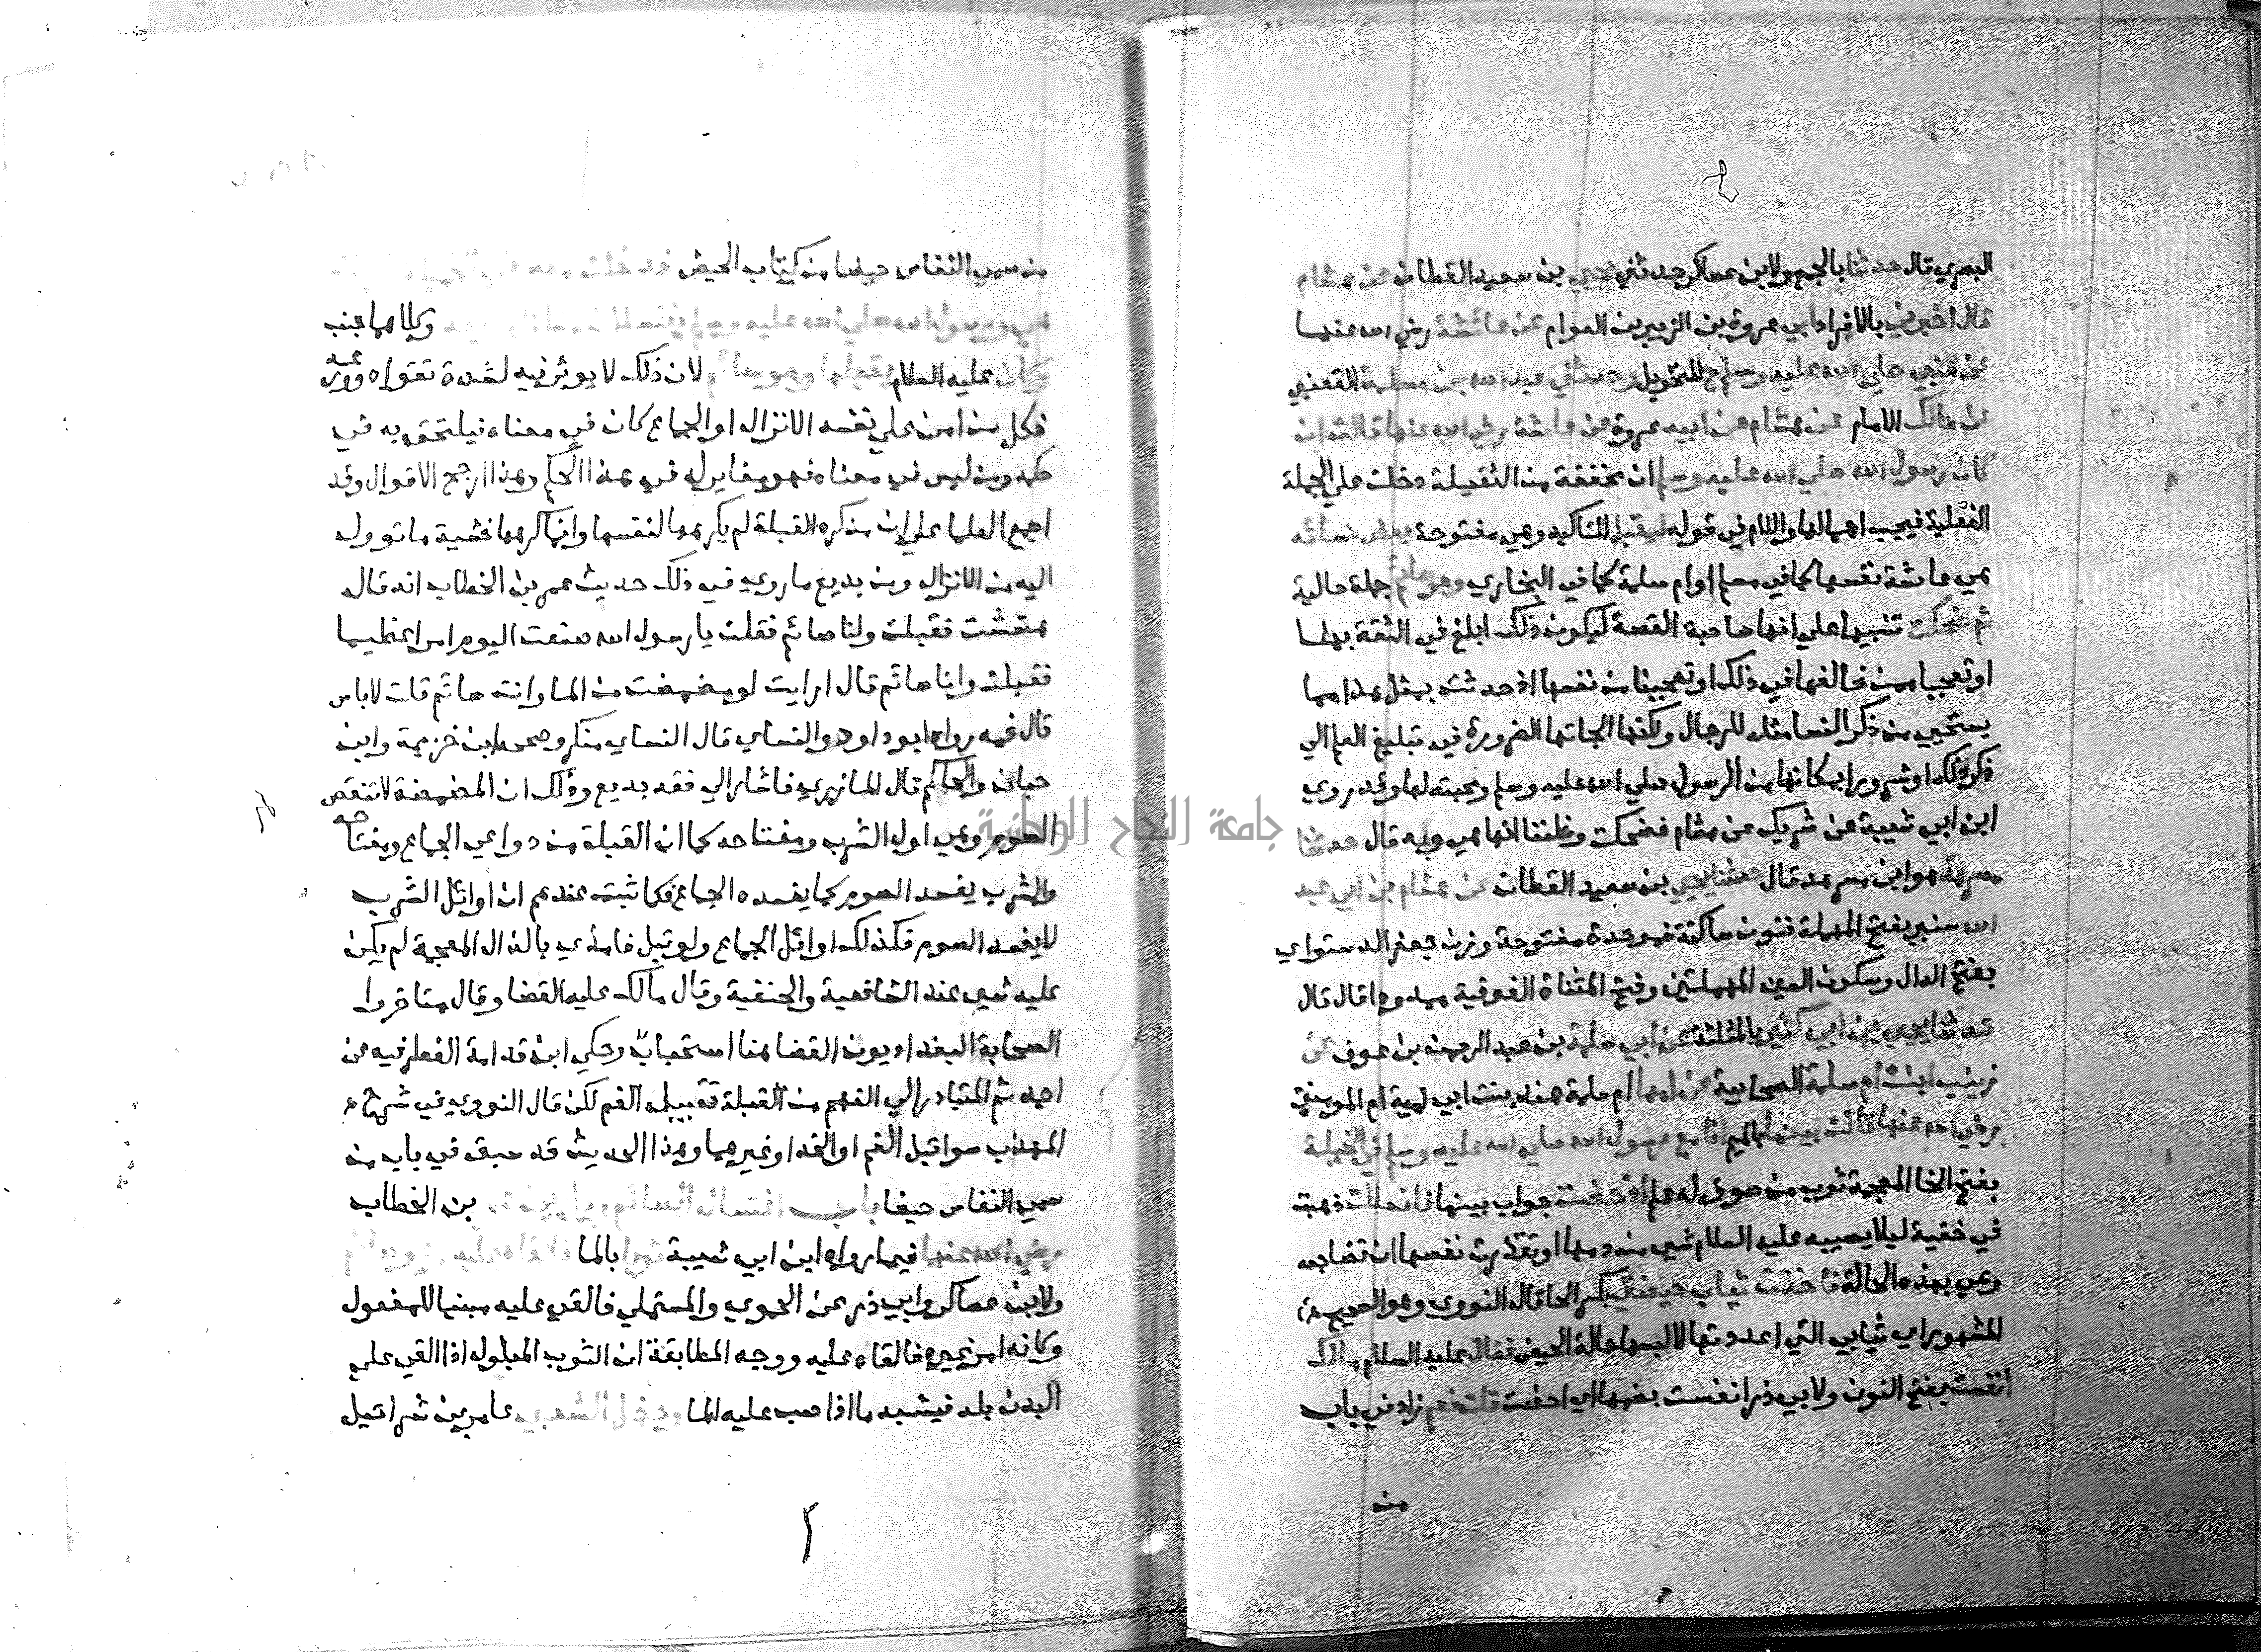 البصري قال حدثنا بالجمع ولابن عساكر حدثني يحيي بن سعيد القطان عن هشام
قال اخبرني بالافراد ابي عروة بن الزبير بن العوام عن عائشة رضي الله عنها
عن النبي صلي الله عليه وسلم ح للتحويل وحدثني عبد الله بن مسلمة القعنبي
عن مالك الامام عن هشام عن ابيه عروة عن عائشة رضي الله عنها قالت ان
كان رسول الله صلي الله عليه وسلم ان مخففة من الثقيلة دخلت علي الجملة
الفعلية فيجب اهمالها واللام في قوله ليقبل للتاكيد وهي مفتوحة بعض نسائه
هي عائشة نفسها كما في مسلم او ام سلمة كما في البخاري وهو صائم جملة حالية
ثم ضحكت تنبيها علي انها صاحبة القصة ليكون ذلك ابلغ في الثقة بها
او تعجبا ممن خالفها في ذلك او تعجبت من نفسها اذ حدثت بمثل هذا مما
يستحيي من ذكر النسا مثله للرجال ولكنها الجاتها الضرورة في تبليغ العلم الي
ذكر ذلك او سرورا بمكانها من الرسول صلي الله عليه وسلم ومحبته لها وقد روي
ابن ابي شيبة عن شريك عن هشام فضحكت وظننا انها هي وبه قال حدثنا
مسدد هو ابن مسرهد قال حدثنا يحيي بن سعيد القطان عن هشام بن ابي عبد
الله سنبر بفتح المهملة فنون ساكنة فموحدة مفتوحة وزن جعفر الدستواي
بفتح الدال وسكون السين المهملتين وفتح المثناة الفوقية ممدودا قال قال
حدثنا يحيي بن ابي كثير بالمثلثة عن ابي سلمة بن عبد الرحمن بن عوف عن
زينب ابنت ام سلمة الصحابية عن امها ام سلمة هند بنت ابي امية ام المومنين
رضي الله عنها قالت بينما بالميم انا مع رسول الله صلي الله عليه وسلم في الخميلة
بفتح الخا المعجمة ثوب من صوف له علم اذ حضت جواب بينما فانسللت ذهبت
في خفية ليلا يصيبه عليه السلام شي من دمها او تقذرت نفسها ان تضاجعه
وهي بهذه الحالة فاخذت ثياب حيضتي بكسر الحا قال النووي وهو الصحيح
المشهور اي ثيابي التي اعددتها لالبسها حالة الحيض فقال عليه السلام مالك
انفست بفتح النون ولابي ذر انفست بضمها اي احضت قلت نعم زاد في باب
من
من سمي النفاس حيضا من كتاب الحيض فدخلت معه في الخميلة
هي ورسول الله صلي الله عليه وسلم يغتسلان من اناء واحد وكلاهما جنب
وكان عليه السلام يقبلها وهو صائم لان ذلك لا يوثر فيه لشدة تقواه وورعه
فكل من امن علي نفسه الانزال او الجماع كان في معناه فيلتحق به في
حكمه ومن ليس في معناه فهو مغاير له في هذا الحكم وهذا ارجح الاقوال وقد
اجمع العلما علي ان من كره القبلة لم يكرهها لنفسها وانما كرهها خشية ما توول
اليه من الانزال ومن بديع ما روي في ذلك حديث عمر بن الخطاب انه قال
هششت فقبلت وانا صائم فقلت يا رسول الله صنعت اليوم امرا عظيما
فقبلت وانا صائم قال ارايت لو مضمضت من الما وانت صائم قلت لا باس
قال فمه رواه ابو داود والنساي قال النساي منكر وصححه ابن خزيمة وابن
حبان والحاكم قال المازري فاشار الي فقه بديع وذلك ان المضمضة لا تنقض
الصوم وهي اول الشرب ومفتاحه كما ان القبلة من دواعي الجماع ومفتاحه
والشرب يفسد الصوم كما يفسده الجماع فكما ثبت عندهم ان اوائل الشرب
لا يفسد الصوم فكذلك اوائل الجماع ولو قبل فامذي بالذال المعجمة لم يكن
عليه شي عند الشافعية والحنفية وقال مالك عليه القضا وقال متاخروا
اصحابه البغداديون القضا هنا استحباب وحكي ابن قدامة الفطر فيه عن
احمد ثم المتبادر الي الفهم من القبلة تقبيل الفم لكن قال النووي في شرح
المهذب سوا قبل الفم او الخد او غيرهما وهذا الحديث قد سبق في باب من
سمي النفاس حيضا باب اغتسال الصائم وبل بن الخطاب
رضي الله عنهما فيما رواه ابن ابي شيبة ثوبا بالما
ولابن عساكر وابي ذر عن الحموي والمستملي فالقي عليه مبنيا للمفعول
وكانه امر غيره فالقاه عليه ووجه المطابقة ان الثوب المبلول اذا القي علي
البدن بله فيشبه ما اذا صب عليه الما ودخل الشعبي عامر بن شراحيل
جامعة النجاح الوطنية